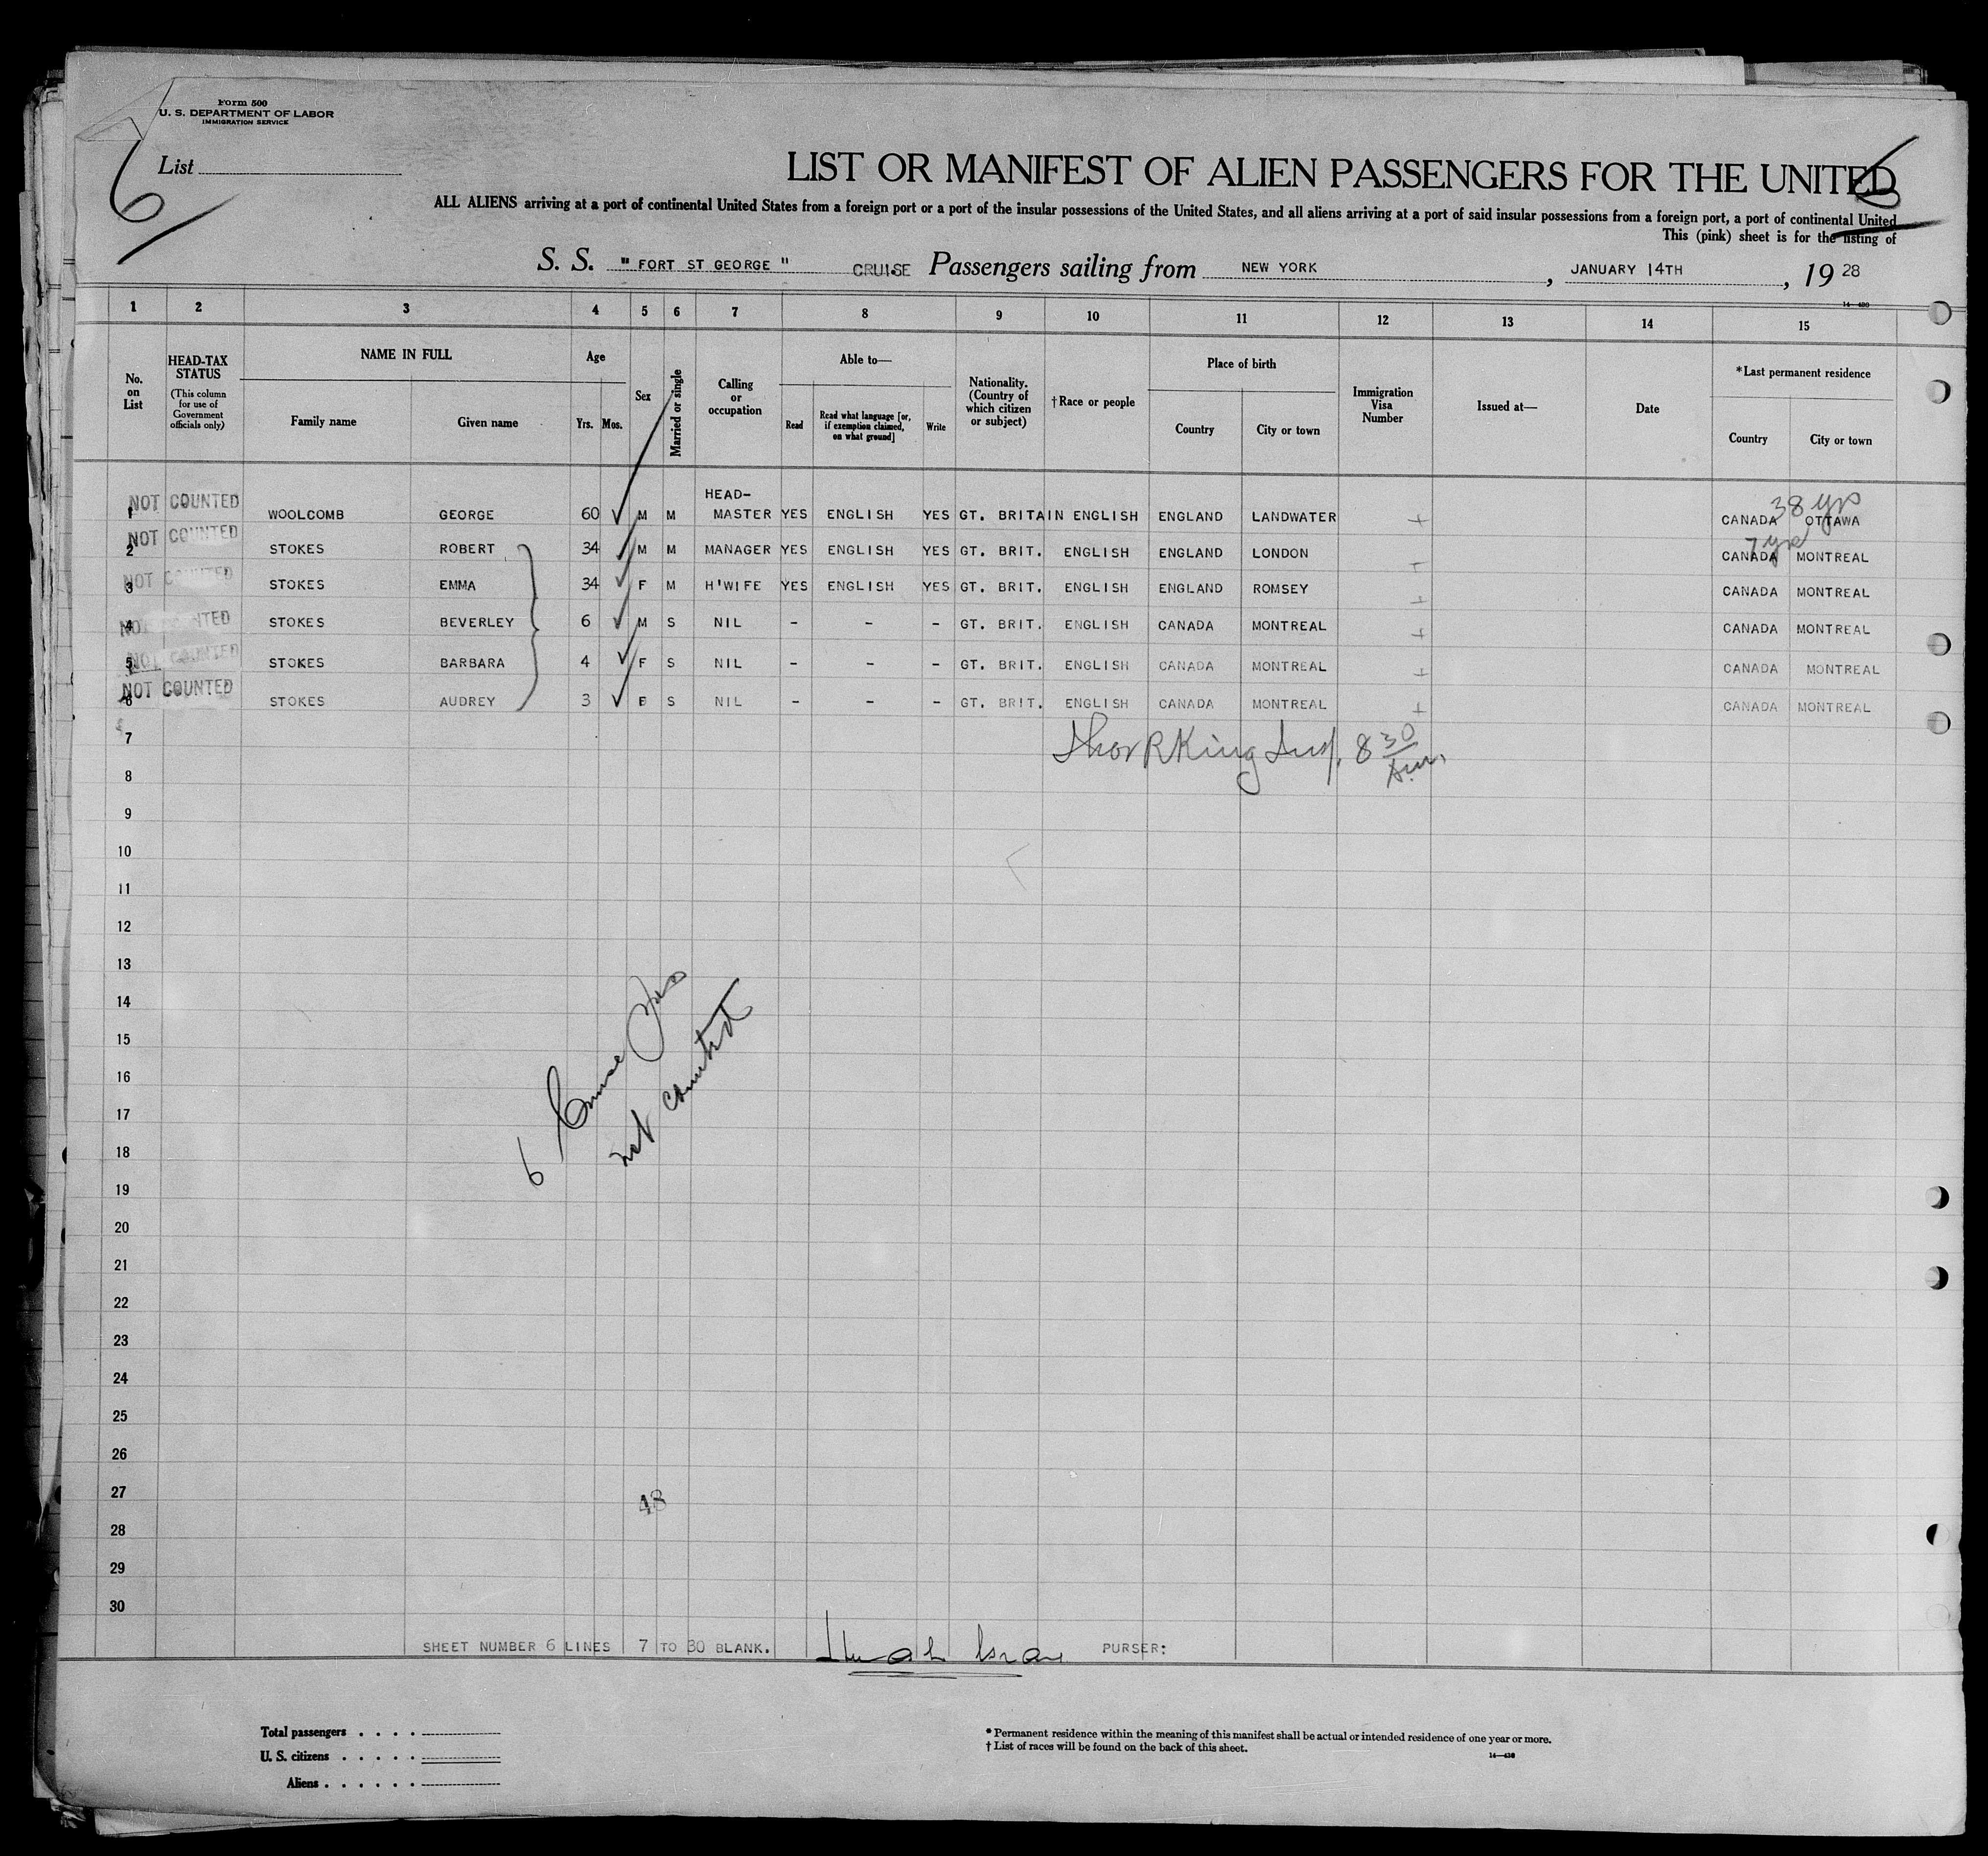 Form 500
U. S. DEPARTMENT OF LABOR
IMMIGRATION SERVICE
6
List
LIST OR MANIFEST OF ALIEN PASSENGERS FOR THE UNITED
6
ALL ALIENS arriving at a port of continental United States from a foreign port or a port of the insular possessions of the United States, and all aliens arriving at a port of said insular possessions from a foreign port, a port of continental United
This (pink) sheet is for the listing of
S. S. "FORT ST GEORGE" CRUISE Passengers sailing from NEW YORK, JANUARY 14TH, 1928
1 2 3 4 5 6 7 8 9 10 11 12 13 14 15
No. on List
HEAD-TAX STATUS
(This column for use of Government officials only)
NAME IN FULL
Family name Given name
Age
Yrs. Mos.
Sex
Married or single
Calling or occupation
Able to—
Read Read what language [or, if exemption claimed, on what ground] Write
Nationality. (Country of which citizen or subject)
†Race or people
Place of birth
Country City or town
Immigration Visa Number
Issued at—
Date
*Last permanent residence
Country City or town
38 yrs
1 NOT COUNTED WOOLCOMB GEORGE 60 M M HEAD-MASTER YES ENGLISH YES GT. BRITAIN ENGLISH ENGLAND LANDWATER CANADA OTTAWA
7 yrs
2 NOT COUNTED STOKES ROBERT 34 M M MANAGER YES ENGLISH YES GT. BRIT. ENGLISH ENGLAND LONDON CANADA MONTREAL
3 NOT COUNTED STOKES EMMA 34 F M H'WIFE YES ENGLISH YES GT. BRIT. ENGLISH ENGLAND ROMSEY CANADA MONTREAL
4 NOT COUNTED STOKES BEVERLEY 6 M S NIL - - - GT. BRIT. ENGLISH CANADA MONTREAL CANADA MONTREAL
5 NOT COUNTED STOKES BARBARA 4 F S NIL - - - GT. BRIT. ENGLISH CANADA MONTREAL CANADA MONTREAL
6 NOT COUNTED STOKES AUDREY 3 S NIL - - - GT. BRIT. ENGLISH CANADA MONTREAL CANADA MONTREAL
7 R King Insp. 8 30 Am.
8
9
10
11
12
13
14
15
16
17
18
19
20
21
22
23
24
25
26
27
28
29
30
6 Cruise
not counted
48
SHEET NUMBER 6 LINES 7 TO 30 BLANK. PURSER:
Total passengers . . . .
U. S. citizens . . . . .
Aliens . . . . . .
* Permanent residence within the meaning of this manifest shall be actual or intended residence of one year or more.
† List of races will be found on the back of this sheet.